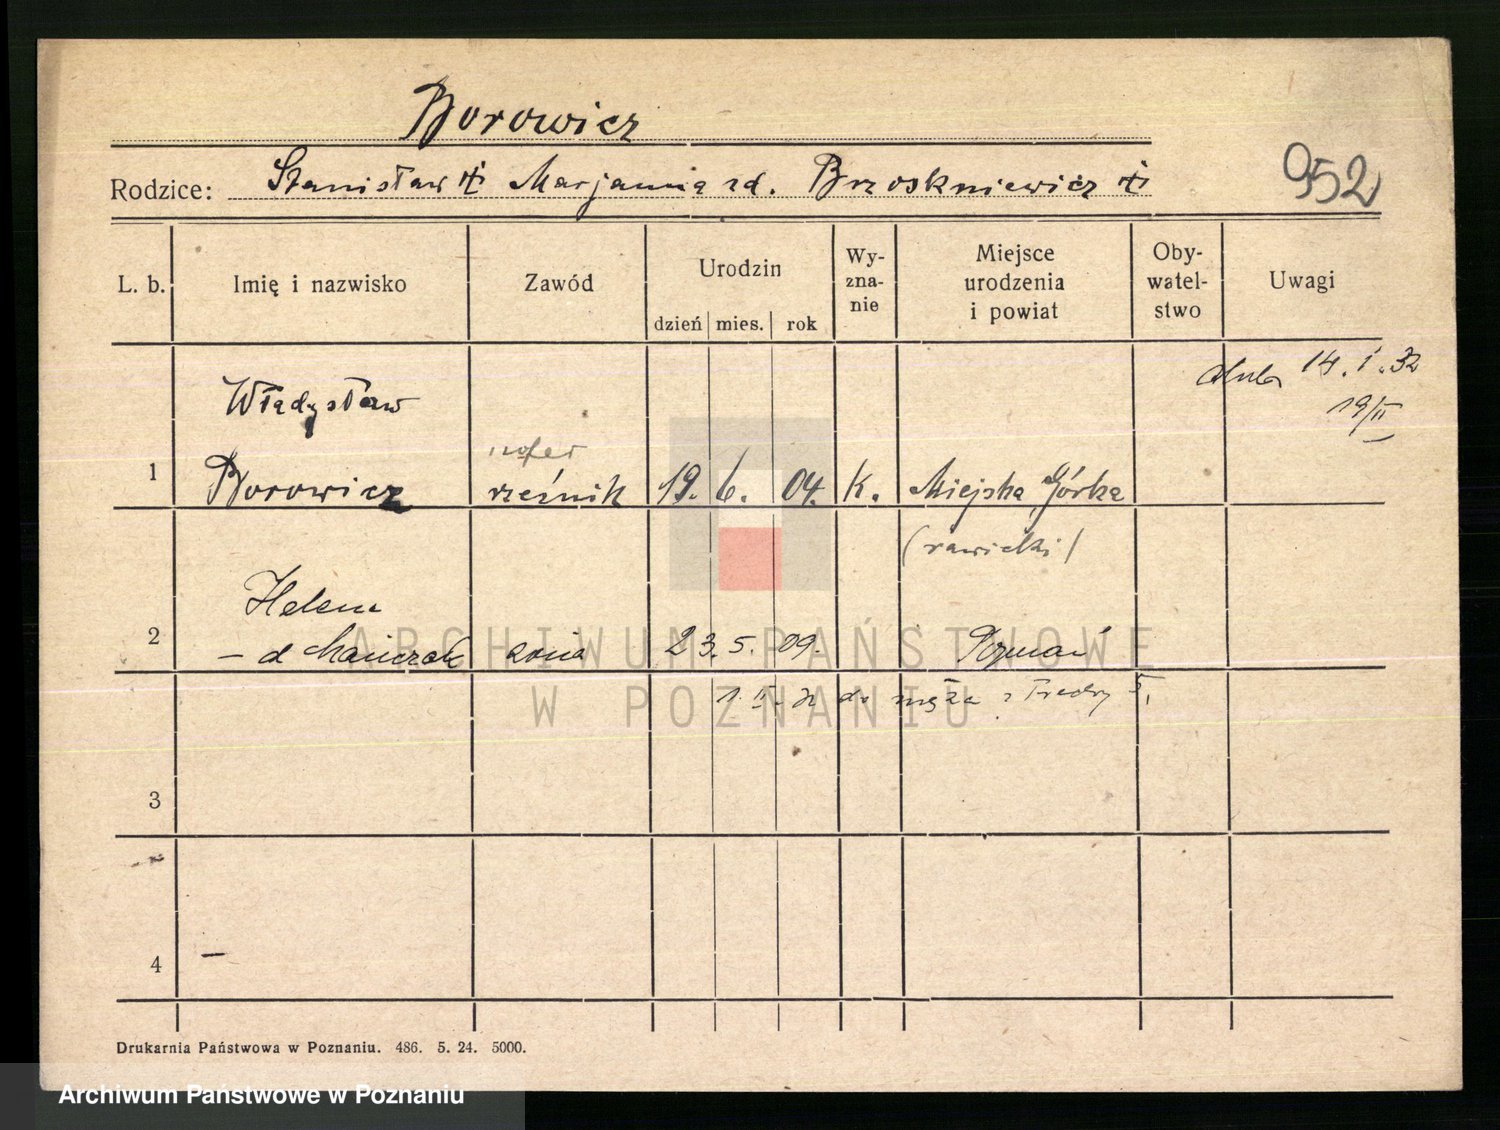 Borowicz
Rodzice: Stanisław Marjanna zd. Brzoskniewicz
952
L. b. Imię i nazwisko Zawód Urodzin dzień mies. rok Wy-zna-nie Miejsce urodzenia i powiat Oby-watel-stwo Uwagi
ślub 14. I. 32
19/II
Władysław
szofer
1 Borowicz rzeźnik 19. 6. 04. K. Miejska Górka
(rawicki)
Helena
2 żona 23. 5. 09. Poznań
1. II. do męża Fredry 5,
3
4
Drukarnia Państwowa w Poznaniu. 486. 5. 24. 5000.
ARCHIWUM PAŃSTWOWE
W POZNANIU
Archiwum Państwowe w Poznaniu